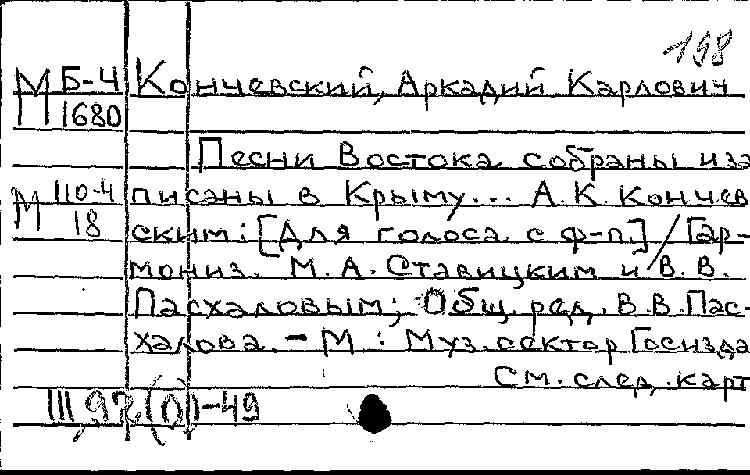 198
М Б-4 Кончевский, Аркадий Карлович
П 1680
Песни Востока собраны и за
М 110-4 писаны в Крыму... А.К. Кончев
18 ским: [Для голоса с ф-п.] / Гар-
мониз. М.А. Ставицким и В.В.
Пасхаловым; Общ. ред. В.В. Пас-
халова. - М : Муз. сектор Госизда
См. след. карт
III, 92(0)-49